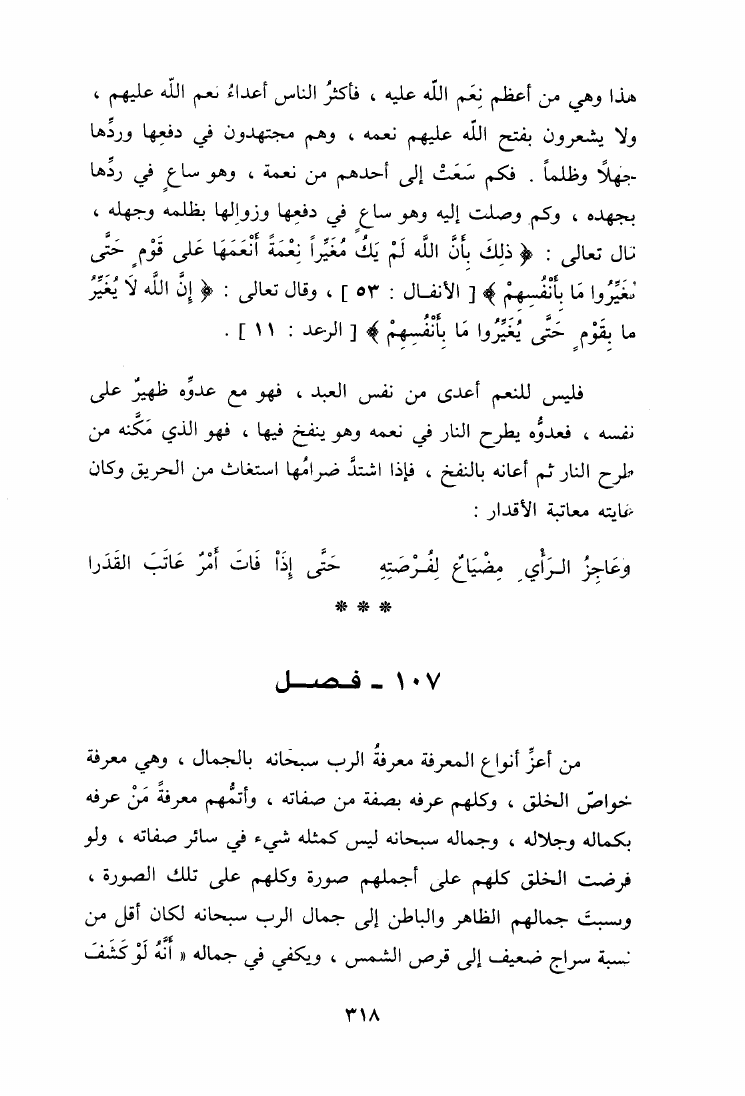 هذا وهي من أعظم نِعَم اللّه عليه ، فأكثرُ الناس أعداءُ نعم اللّه عليهم ،
ولا يشعرون بفتح اللّه عليهم نعمه ، وهم مجتهدون في دفعها وردِّها
جهلاً وظلماً . فكم سَعَتْ إلى أحدهم من نعمة ، وهو ساعٍ في ردِّها
بجهده ، وكم وصلت إليه وهو ساعٍ في دفعها وزوالها بظلمه وجهله ،
قال تعالى : ﴿ ذلِكَ بِأَنَّ اللَّه لَمْ يَكُ مُغَيِّراً نِعْمَةً أَنْعَمَهَا عَلى قَوْمٍ حَتَّى
يُغَيِّرُوا مَا بِأَنْفُسِهِمْ ﴾ [ الأنفال : ٥٣ ] ، وقال تعالى : ﴿ إِنَّ اللَّه لَا يُغَيِّرُ
ما بِقَوْمٍ حَتَّى يُغَيِّروا مَا بِأَنْفُسِهِمْ ﴾ [ الرعد : ١١ ] .
فليس للنعم أعدى من نفس العبد ، فهو مع عدوِّه ظهيرٌ على
نفسه ، فعدوُّه يطرح النار في نعمه وهو ينفخ فيها ، فهو الذي مَكَّنه من
طرح النار ثم أعانه بالنفخ ، فإذا اشتدَّ ضرامُها استغاث من الحريق وكان
غايته معاتبة الأقدار :
وَعَاجِزُ الرَأْيِ مِضْيَاعٌ لِفُرْصَتِهِ حَتَّى إِذَاْ فَاتَ أَمْرٌ عَاتَبَ القَدَرا
* * *
١٠٧ - فصل
من أعزِّ أنواع المعرفة معرفةُ الرب سبحانه بالجمال ، وهي معرفة
خواصّ الخلق ، وكلهم عرفه بصفة من صفاته ، وأتمُّهم معرفةً مَنْ عرفه
بكماله وجلاله ، وجماله سبحانه ليس كمثله شيء في سائر صفاته ، ولو
فرضت الخلق كلهم على أجملهم صورة وكلهم على تلك الصورة ،
ونسبتَ جمالهم الظاهر والباطن إلى جمال الرب سبحانه لكان أقل من
نسبة سراج ضعيف إلى قرص الشمس ، ويكفي في جماله « أَنَّهُ لَوْ كَشَفَ
٣١٨